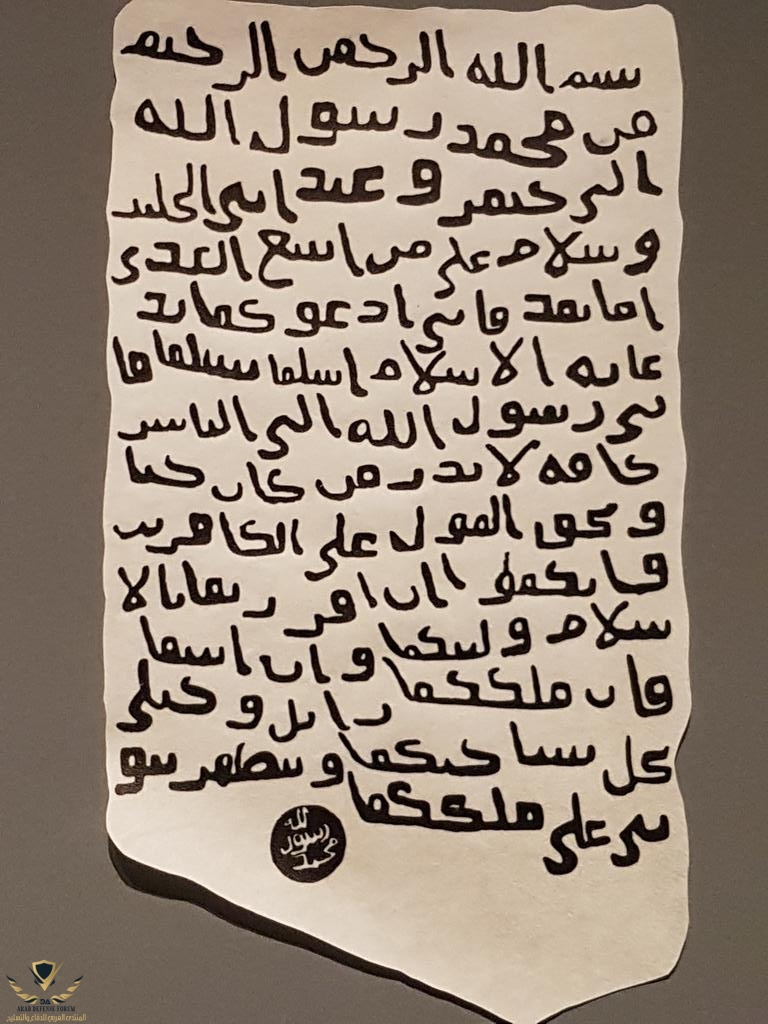 بسم الله الرحمن الرحيم
من محمد رسول الله
الى جيفر وعبد ابني الجلند
وسلام على من اتبع الهدى
اما بعد فاني ادعوكما بد
عاية الاسلام اسلما تسلما فا
ني رسول الله الى الناس
كافة لانذر من كان حيا
ويحق القول على الكافرين
فانكما ان اقررتما بالا
سلام وليتكما وان ابيتما
فان ملككما زايل وخيلي
تحل بساحتكما وتظهر نبو
تي على ملككما
الله
رسول
محمد
DA
ARAB DEFENSE FORUM
المنتدى العربي للدفاع والتسليح